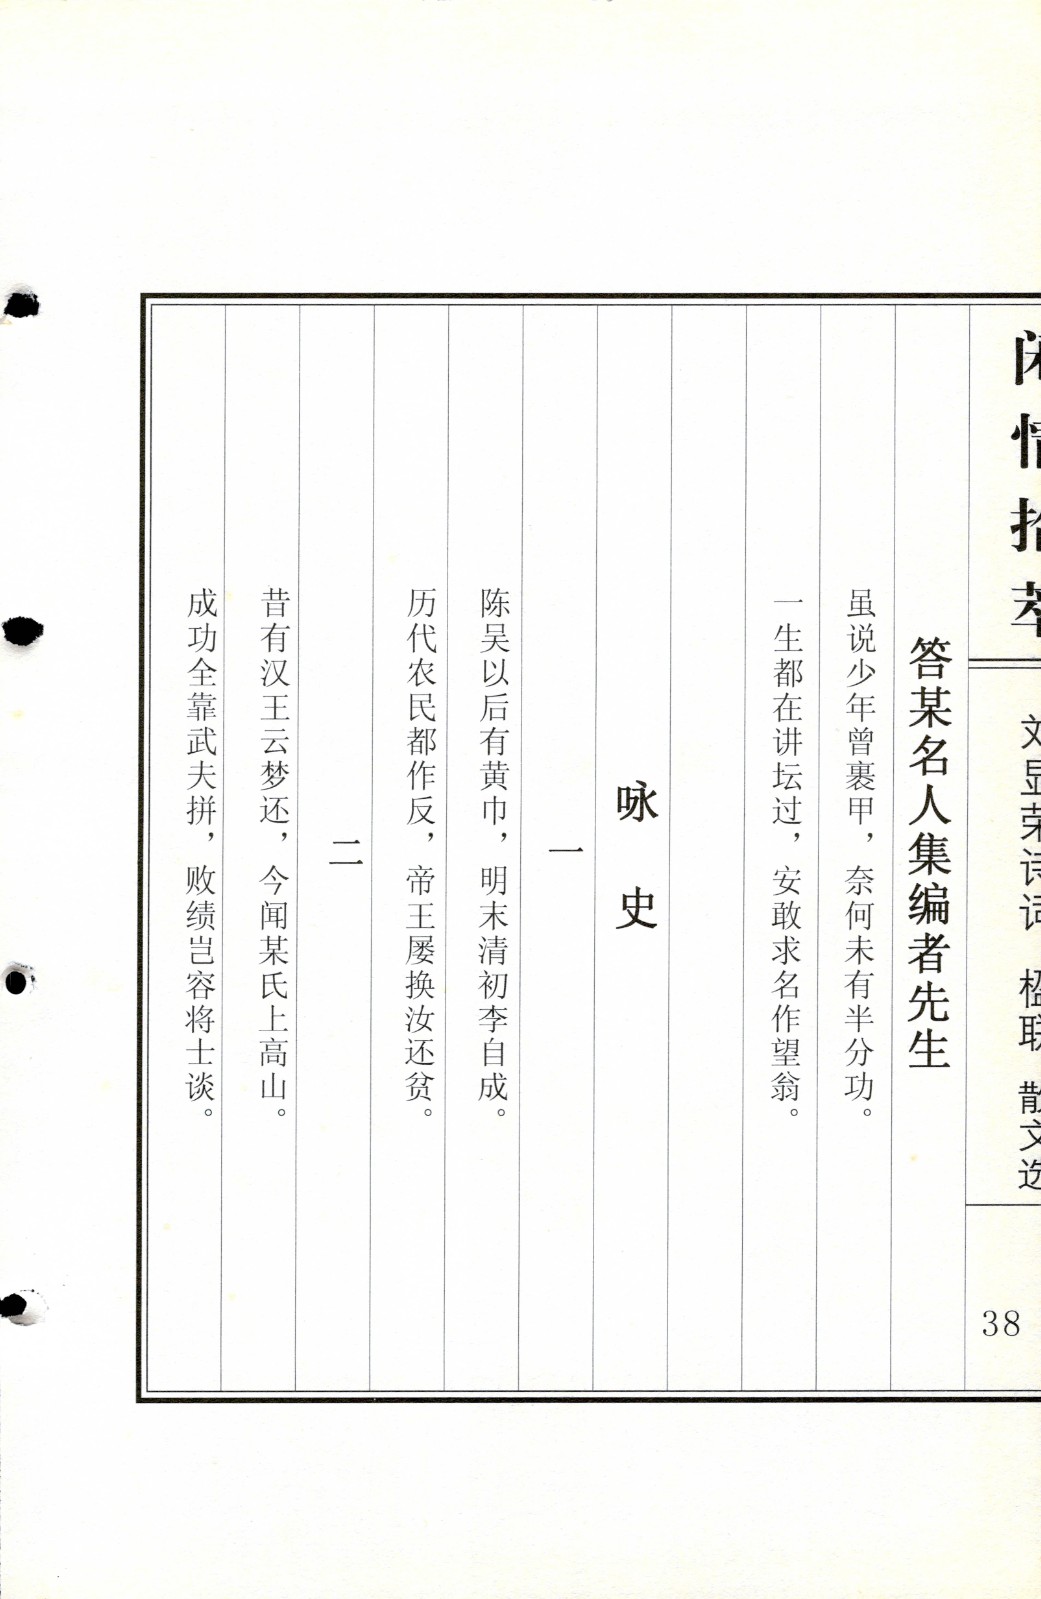 闲情拾萃
刘显荣诗词 楹联 散文选
38
答某名人集编者先生
虽说少年曾裹甲，奈何未有半分功。
一生都在讲坛过，安敢求名作望翁。
咏史
一
陈吴以后有黄巾，明末清初李自成。
历代农民都作反，帝王屡换汝还贫。
二
昔有汉王云梦还，今闻某氏上高山。
成功全靠武夫拼，败绩岂容将士谈。